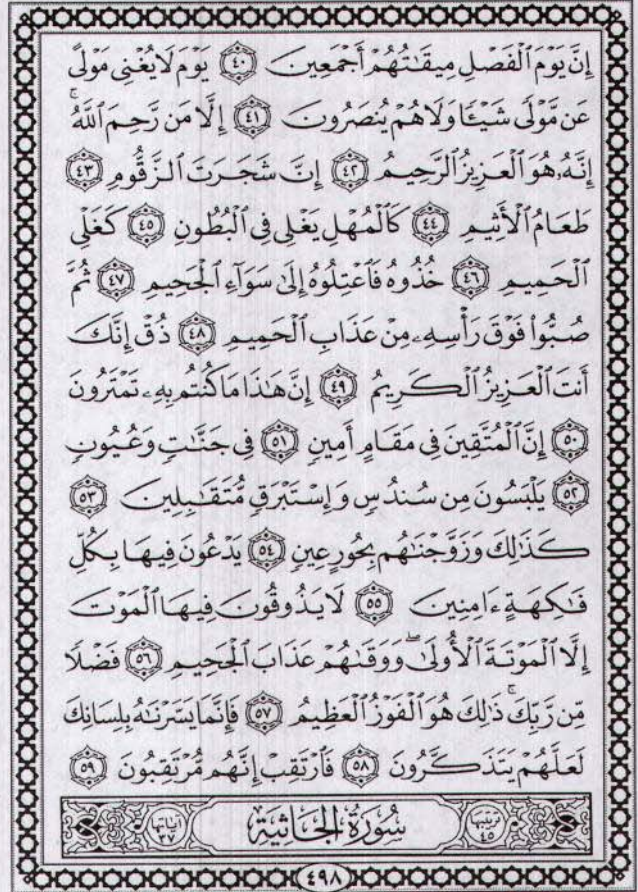 إِنَّ يَوْمَ ٱلْفَصْلِ مِيقَـٰتُهُمْ أَجْمَعِينَ ٤٠ يَوْمَ لَا يُغْنِى مَوْلًى
عَن مَّوْلًى شَيْـًٔا وَلَا هُمْ يُنصَرُونَ ٤١ إِلَّا مَن رَّحِمَ ٱللَّهُ ۚ
إِنَّهُۥ هُوَ ٱلْعَزِيزُ ٱلرَّحِيمُ ٤٢ إِنَّ شَجَرَتَ ٱلزَّقُّومِ ٤٣
طَعَامُ ٱلْأَثِيمِ ٤٤ كَٱلْمُهْلِ يَغْلِى فِى ٱلْبُطُونِ ٤٥ كَغَلْىِ
ٱلْحَمِيمِ ٤٦ خُذُوهُ فَٱعْتِلُوهُ إِلَىٰ سَوَآءِ ٱلْجَحِيمِ ٤٧ ثُمَّ
صُبُّوا۟ فَوْقَ رَأْسِهِۦ مِنْ عَذَابِ ٱلْحَمِيمِ ٤٨ ذُقْ إِنَّكَ
أَنتَ ٱلْعَزِيزُ ٱلْكَرِيمُ ٤٩ إِنَّ هَـٰذَا مَا كُنتُم بِهِۦ تَمْتَرُونَ
٥٠ إِنَّ ٱلْمُتَّقِينَ فِى مَقَامٍ أَمِينٍ ٥١ فِى جَنَّـٰتٍ وَعُيُونٍ
٥٢ يَلْبَسُونَ مِن سُندُسٍ وَإِسْتَبْرَقٍ مُّتَقَـٰبِلِينَ ٥٣
كَذَٰلِكَ وَزَوَّجْنَـٰهُم بِحُورٍ عِينٍ ٥٤ يَدْعُونَ فِيهَا بِكُلِّ
فَـٰكِهَةٍ ءَامِنِينَ ٥٥ لَا يَذُوقُونَ فِيهَا ٱلْمَوْتَ
إِلَّا ٱلْمَوْتَةَ ٱلْأُولَىٰ ۖ وَوَقَىٰهُمْ عَذَابَ ٱلْجَحِيمِ ٥٦ فَضْلًا
مِّن رَّبِّكَ ۚ ذَٰلِكَ هُوَ ٱلْفَوْزُ ٱلْعَظِيمُ ٥٧ فَإِنَّمَا يَسَّرْنَـٰهُ بِلِسَانِكَ
لَعَلَّهُمْ يَتَذَكَّرُونَ ٥٨ فَٱرْتَقِبْ إِنَّهُم مُّرْتَقِبُونَ ٥٩
ترتيبها ٤٥ سُورَةُ الجَاثِيَة آياتها ٣٧
٤٩٨